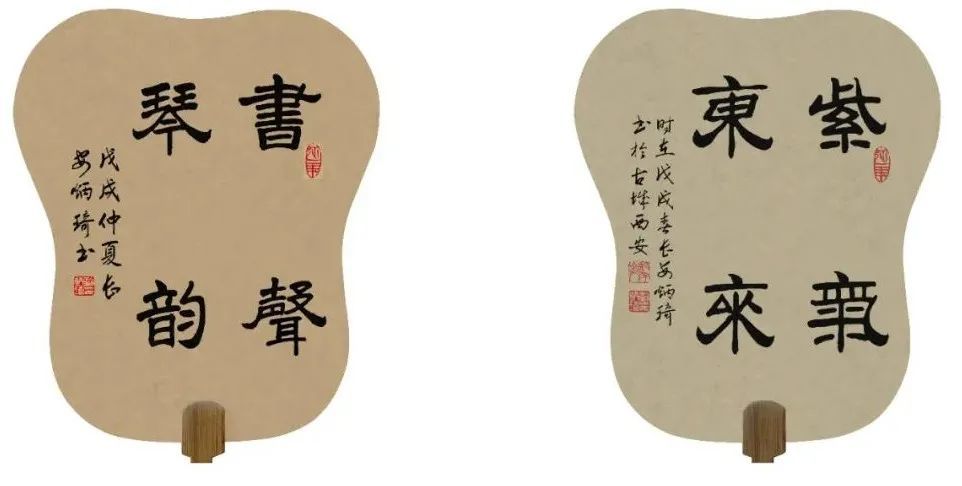 書聲
琴韵
戊戌仲夏长
安炳琦书
紫氣
東來
时在戊戌春长安炳琦
书於古城西安